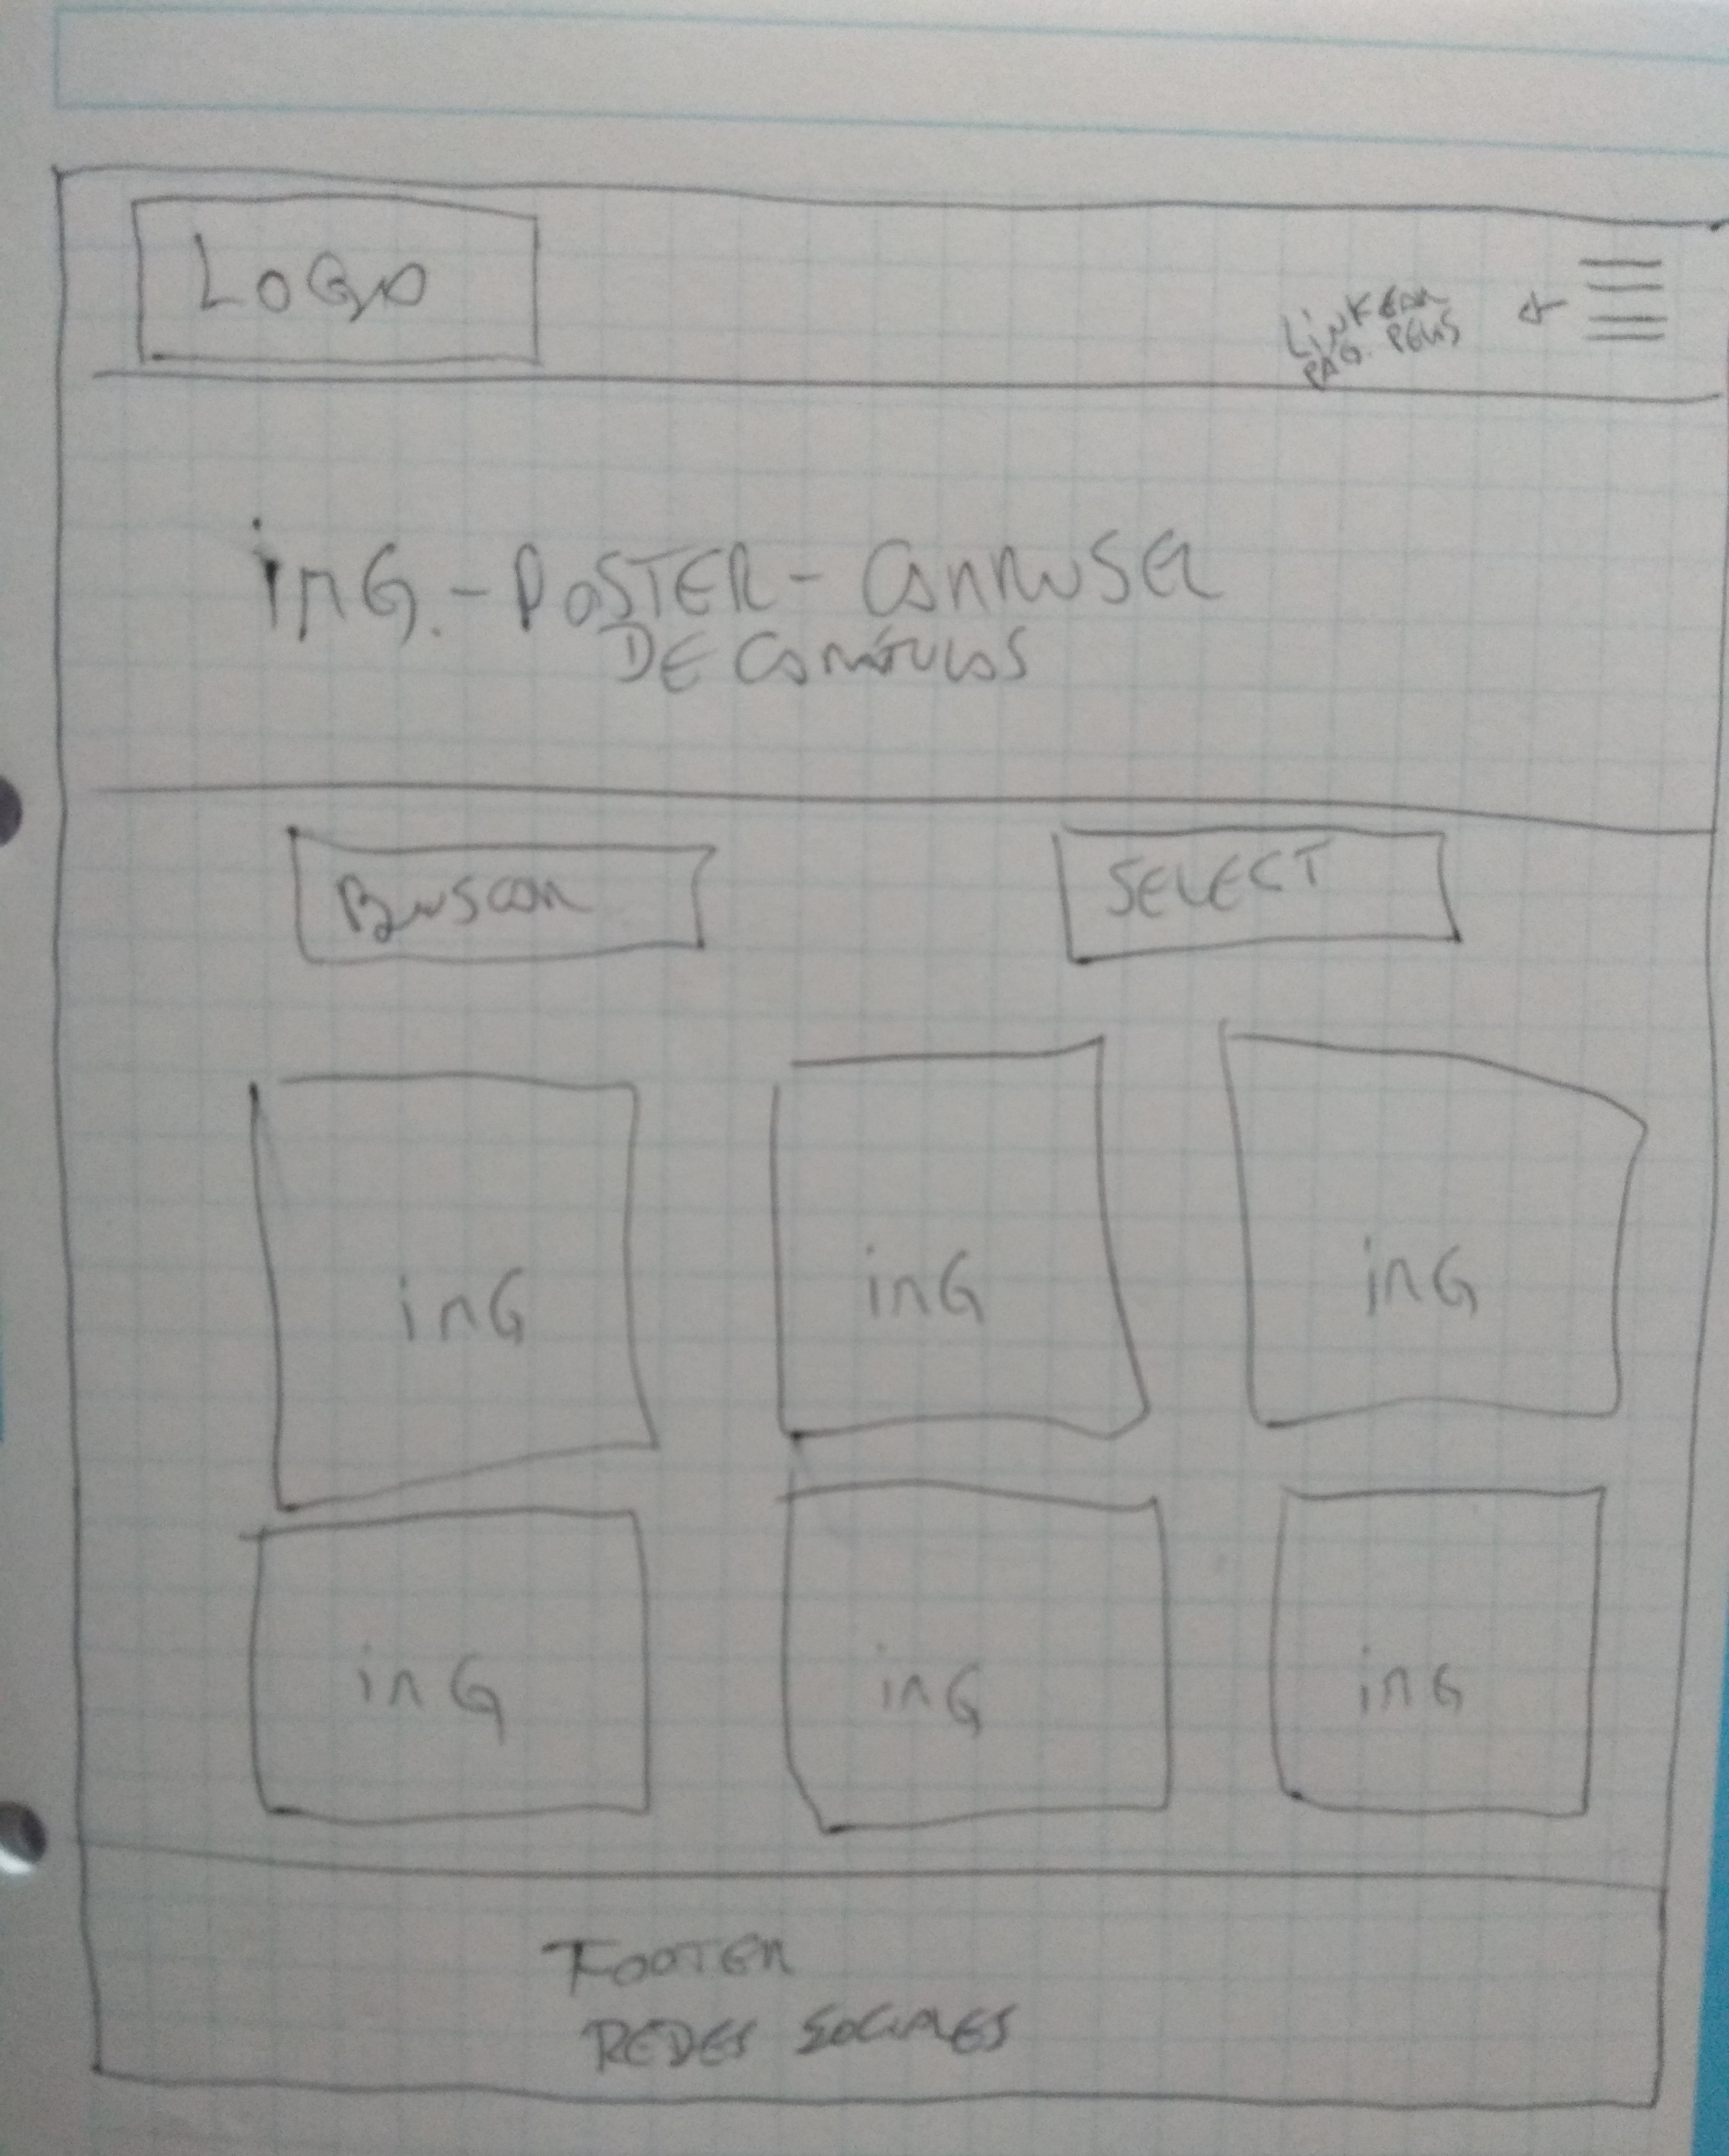 LOGO
LinKEAR
PAG. PELIS
imG. - POSTER - CARRUSEL
DE CARÁTULAS
BuSCAR
SELECT
imG
imG
imG
imG
imG
imG
FOOTER
REDES SOCIALES